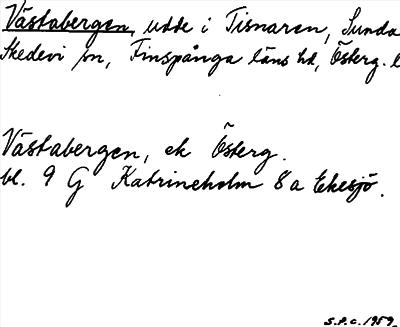 Västabergen, udde i Tisnaren, Sunda
Skedevi sn, Finspånga läns hd, Österg. l
Västabergen, ek Österg.
bl. 9 G Katrineholm 8 a Ekesjö.
S.P.C. 1959.